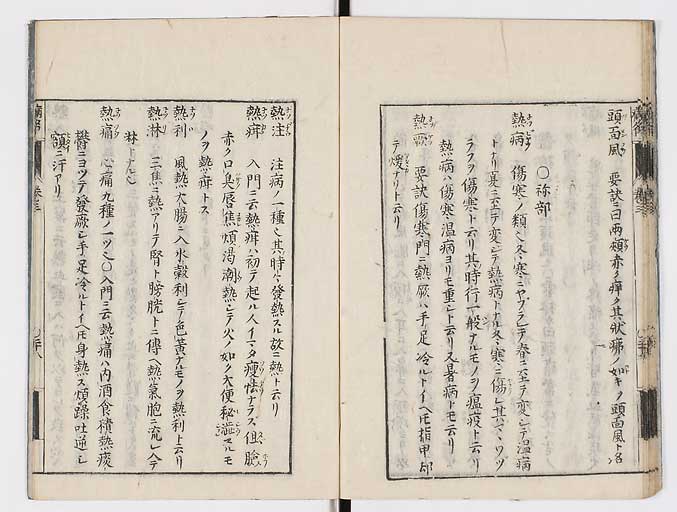 頭面風 要訣ニ曰両頬赤ク痒ク其状痱ノ如キノ頭面風ト名
〇祢部
熱病 傷寒ノ類ヒ冬寒ニヤブラレテ春ニ至テ変シテ温病
トナリ夏ニ至テ変シテ熱病トナル冬寒ニ傷レ其マヽウツ
ラヲ傷寒ト云リ其時行一般ナルモノヲ瘟疫ト云リ
熱病ハ傷寒温病ヨリモ重シト云リ又暑病トモ云リ
熱厥 要訣傷寒門ニ熱厥ハ手足冷ルトイヘ𪜈指甲却
テ煖ナリト云リ
熱注 注病ノ一種ヒ其時々發熱スル故ニ熱ト云リ
熱疳 入門ニ云熱疳ハ初テ起ルハ人イマタ痩怯ナラス但臉
赤ク口臭唇焦煩渇潮熱シテ火ノ如ク大便秘澁スルモ
ノヲ熱疳トス
熱利 風熱大腸ニ入水穀利シテ色黄ナルモノヲ熱利ト云リ
熱淋 三焦ニ熱アリテ腎ト膀胱トニ傳ヘ熱氣胞ニ流レ入テ
林トナル
熱痛 心痛九種ノ一ツ〇入門ニ云熱痛ハ内酒食積熱痰
欝ニヨツテ發厥シ手足冷ルトイヘ𪜈身熱ス煩躁吐逆シ
額ニ汗アリ